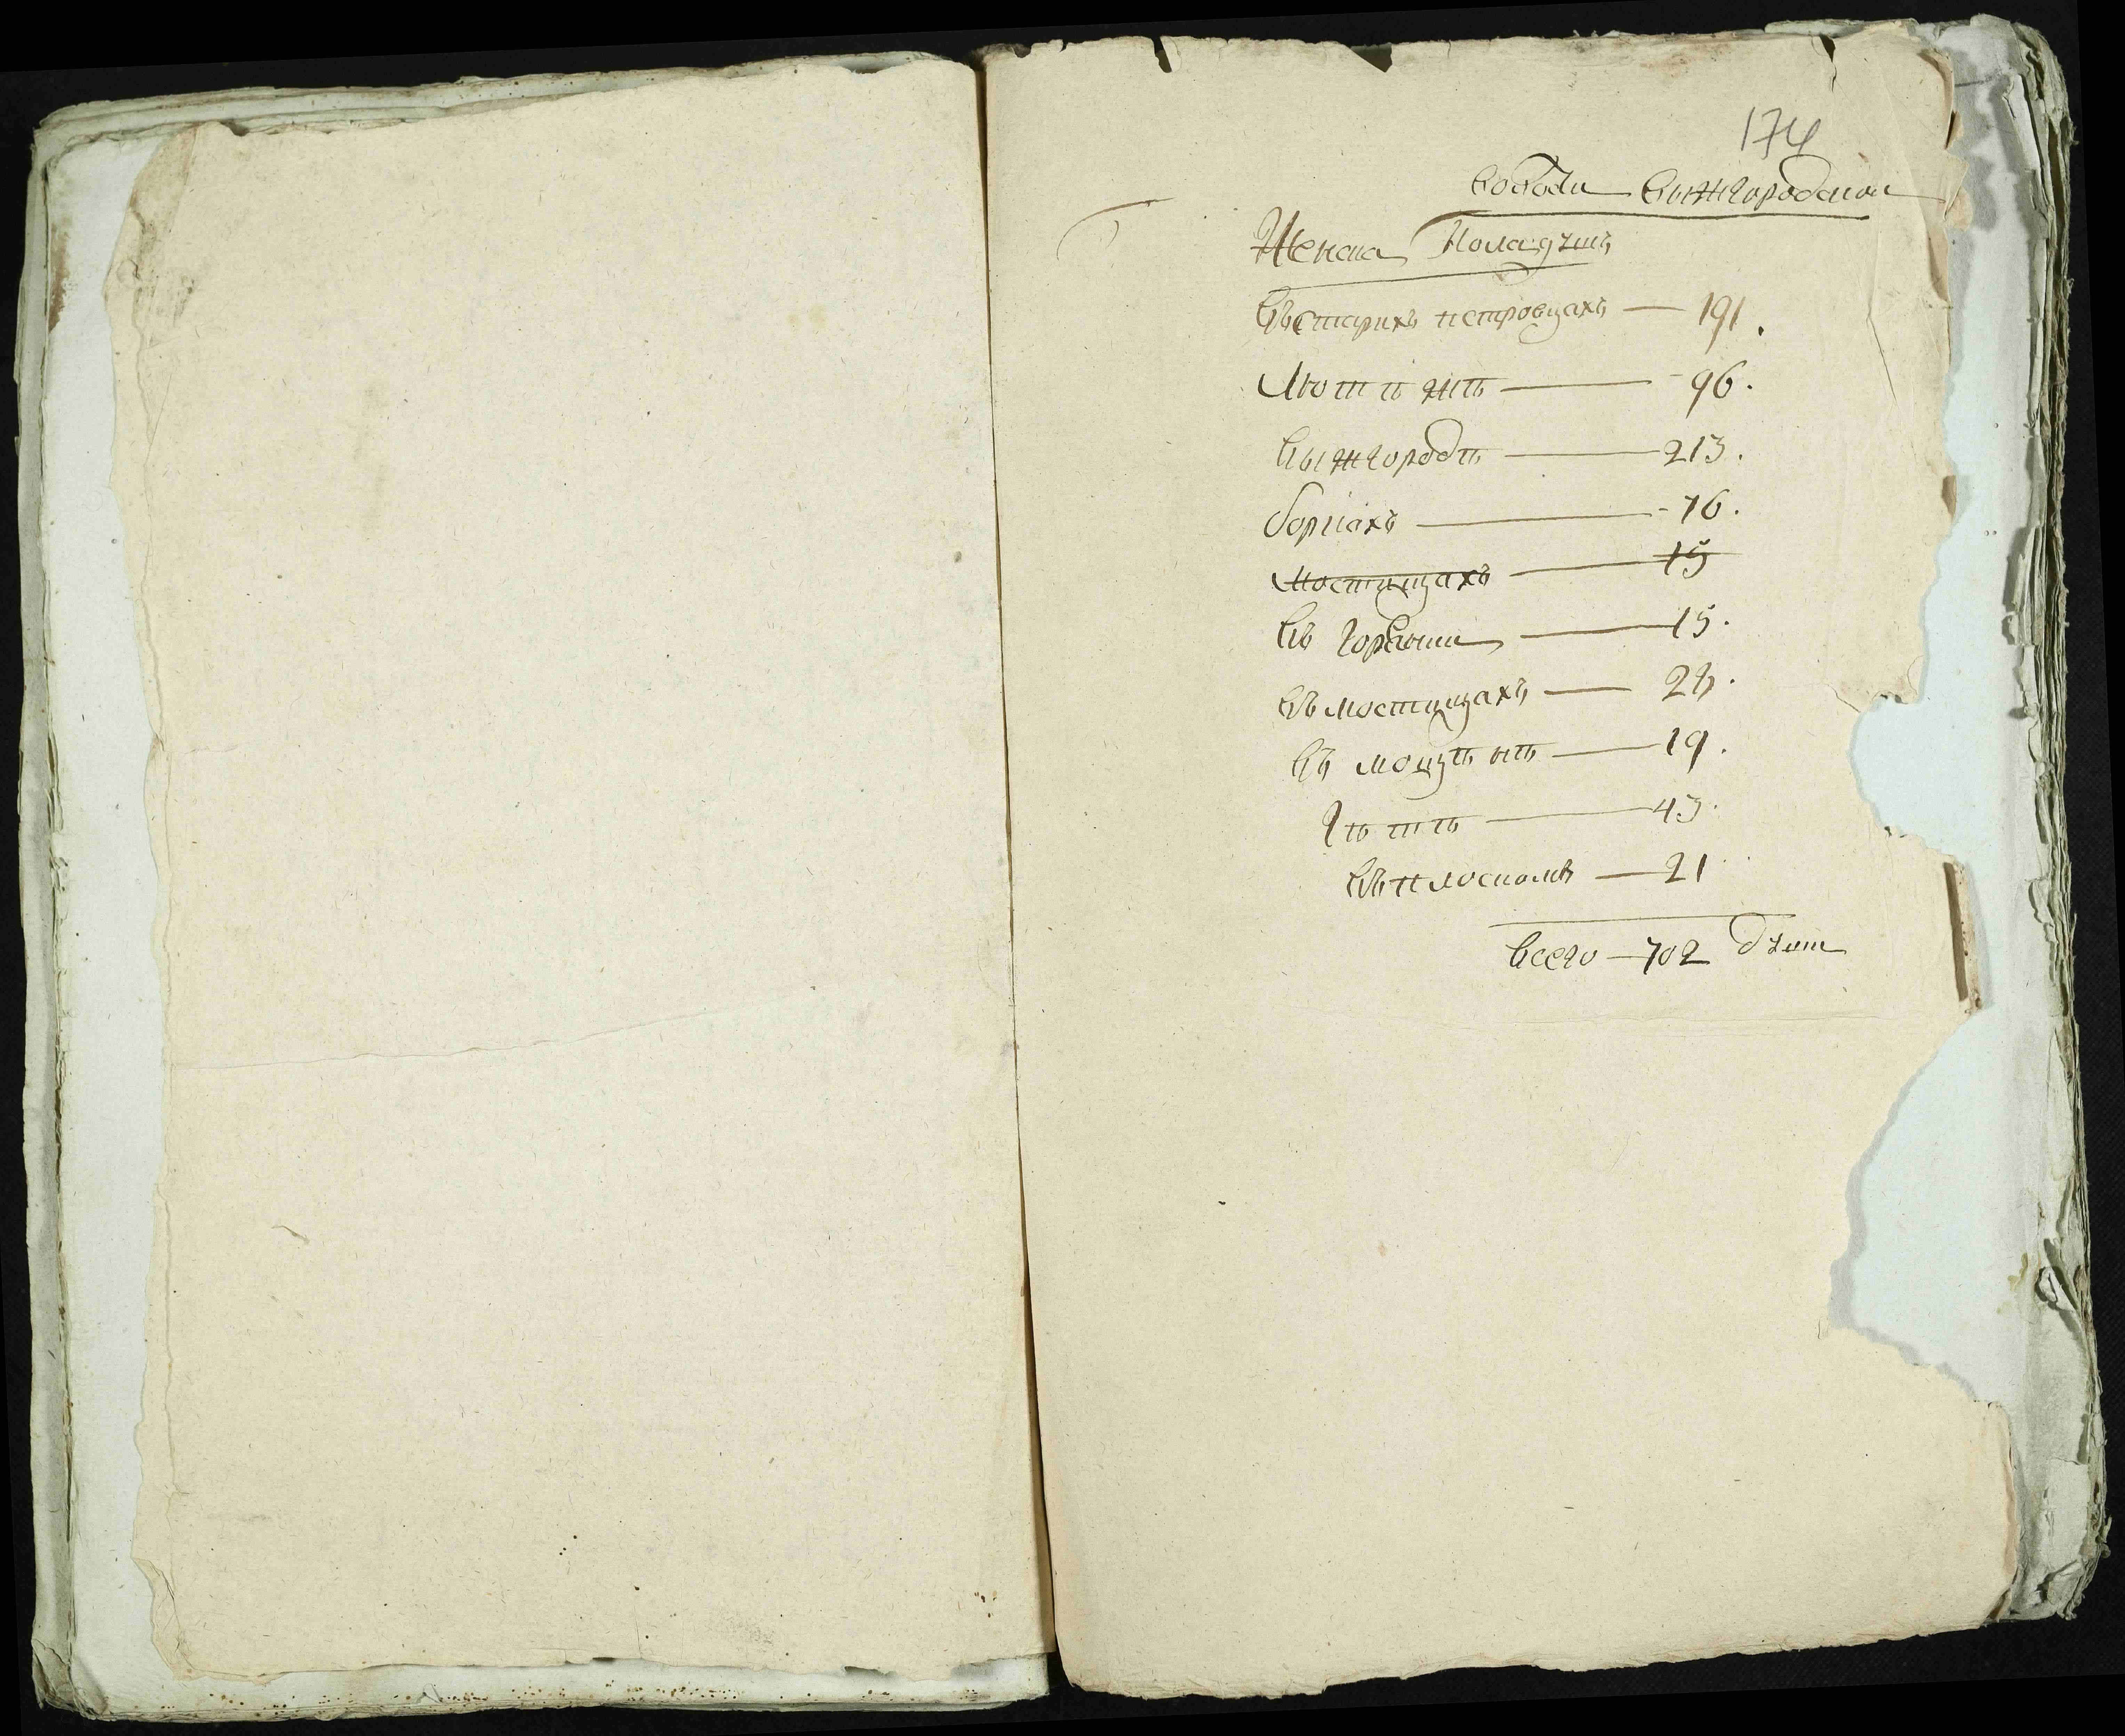 174
волости вышгородской
Женска Пола душъ
Въ старихъ петровцахъ — 191.
Лютѣжѣ — 96.
вышгородѣ — 213.
боркахъ — 76.
мостищахъ — 15
въ горѣном — 15.
въ мостищахъ — 28.
въ мощунѣ — 19.
гутѣ — 43.
въ плоском — 21
всего — 702 душ